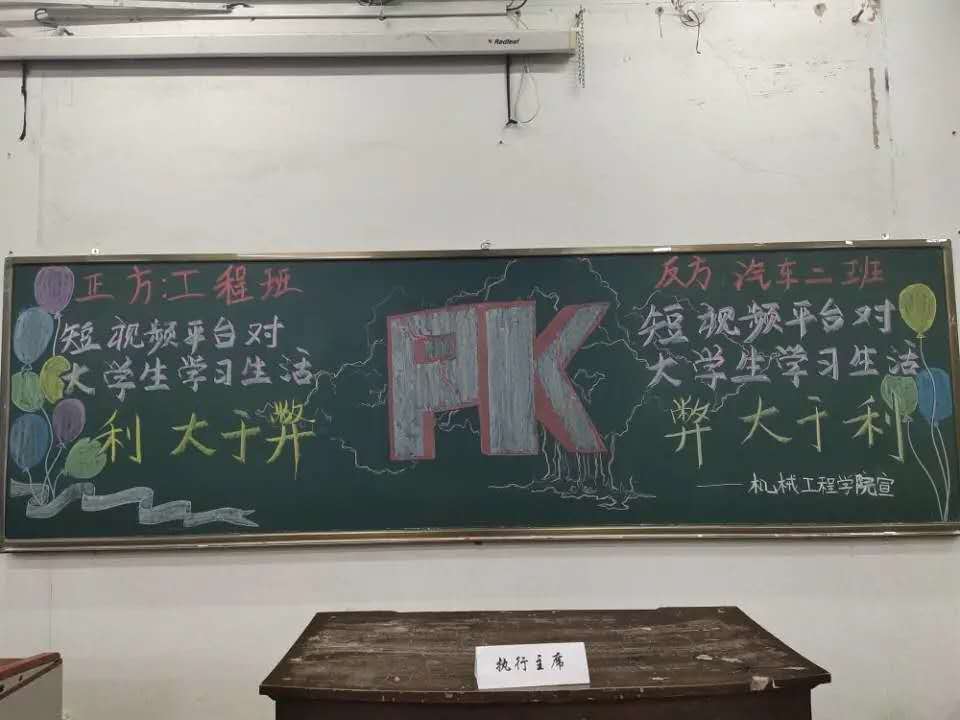 Redleaf
正方:工程班
短视频平台对
大学生学习生活
利大于弊
PK
反方 汽车二班
短视频平台对
大学生学习生活
弊大于利
——机械工程学院宣
执行主席